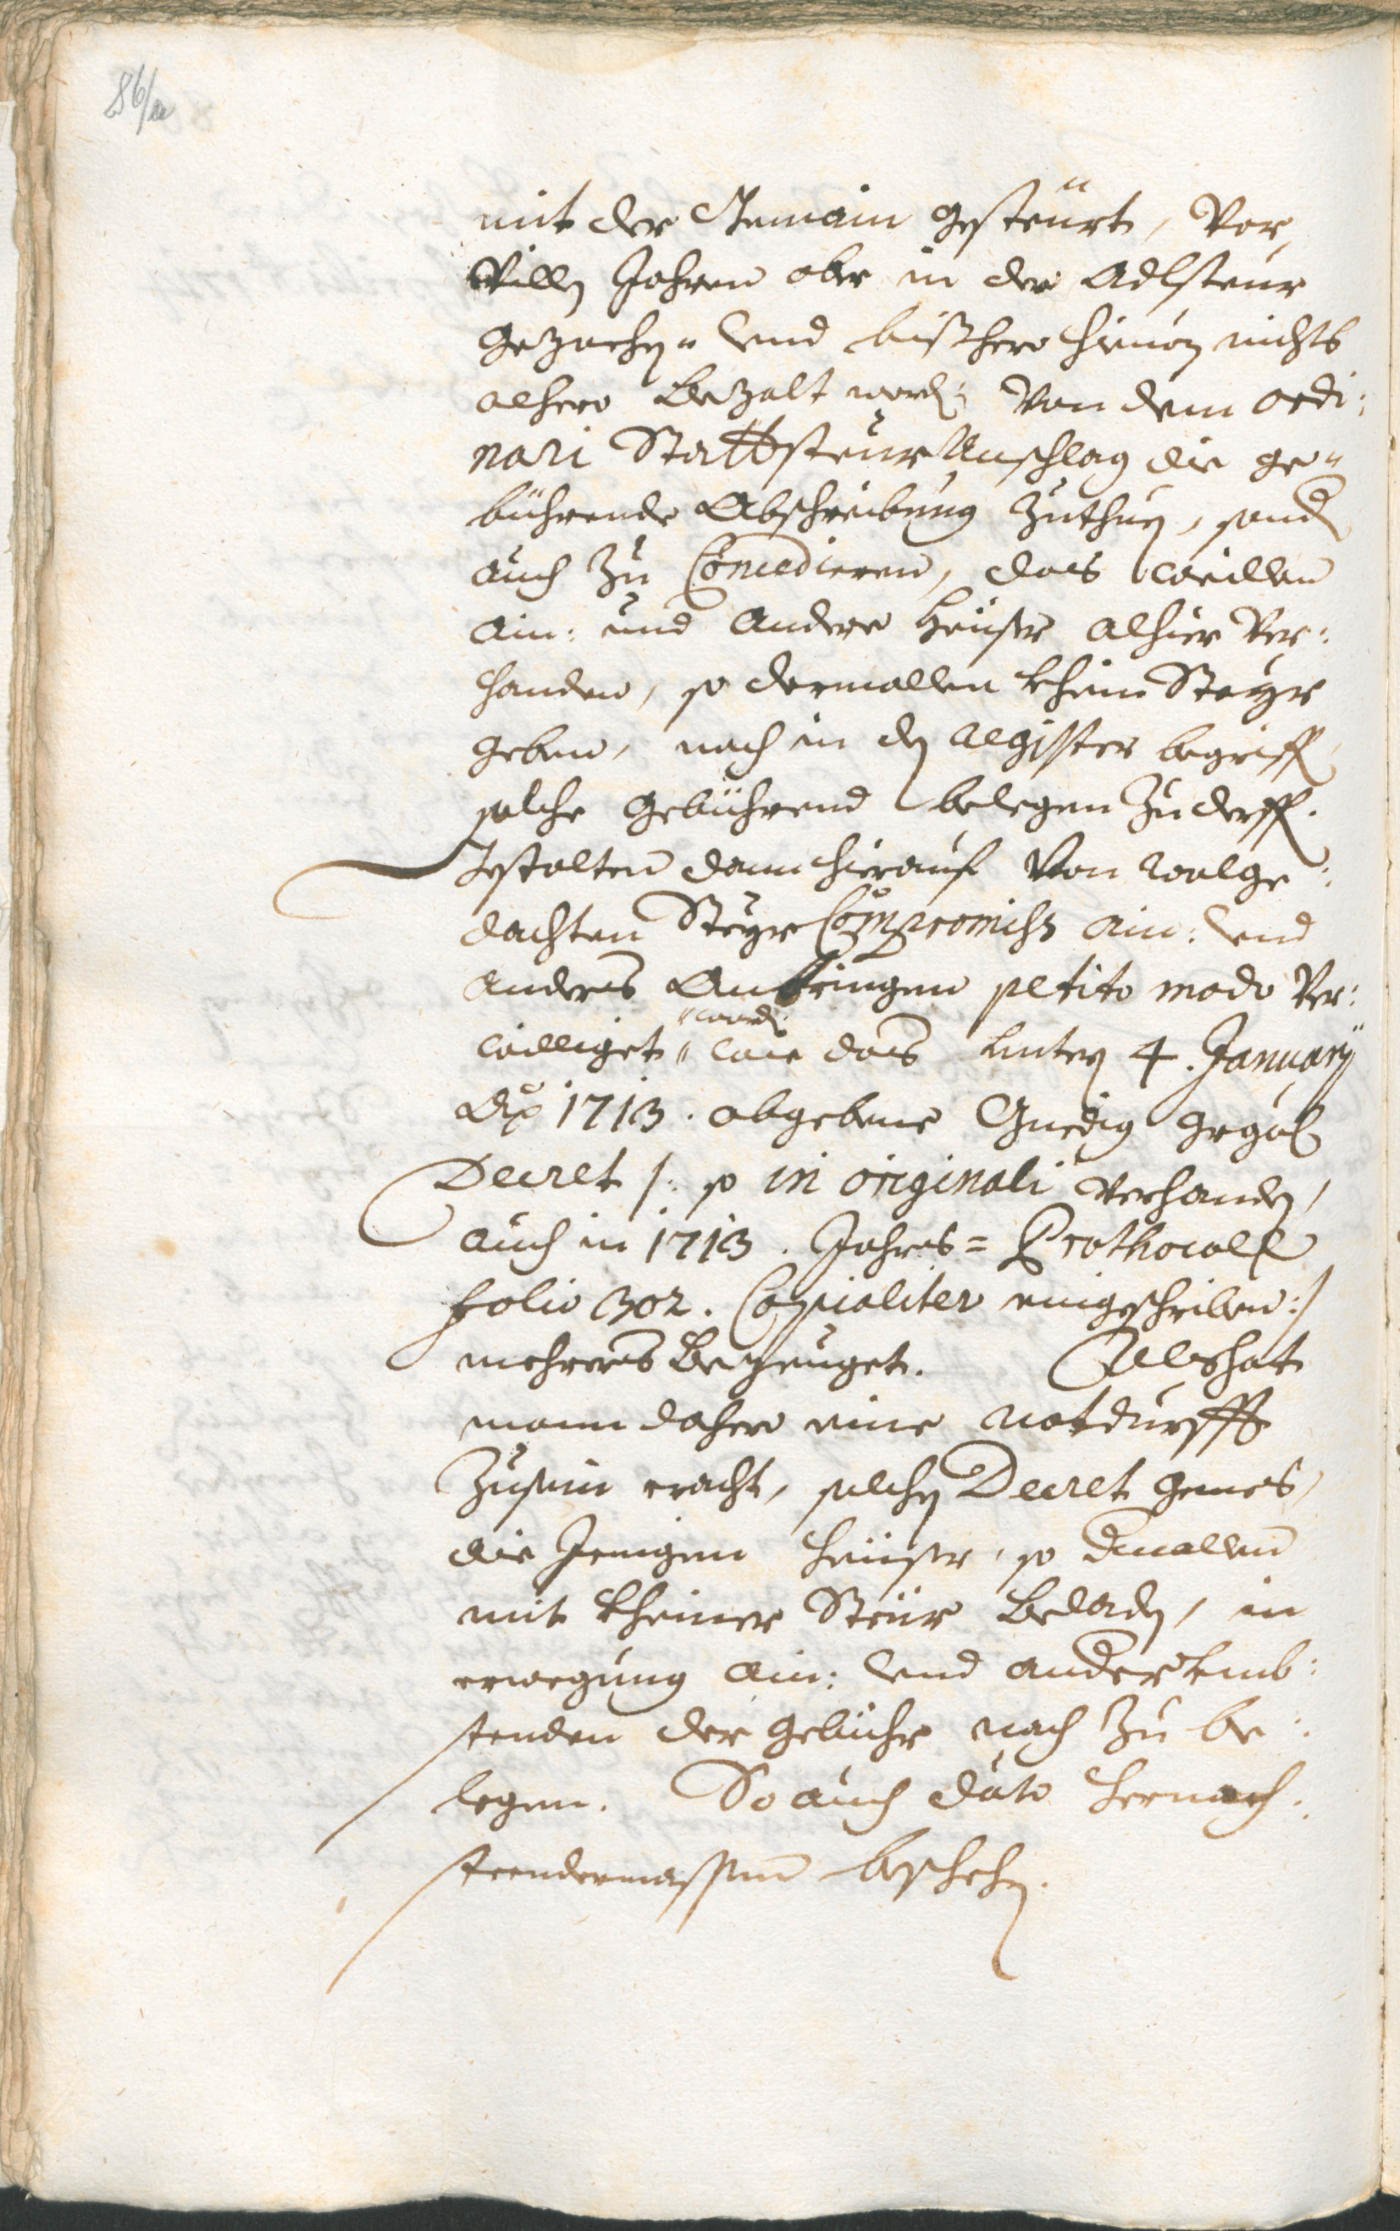 86/a
mit der Gemain gesteürt, Vor
Villen Jahren aber in der Adlsteur
gezochen" Vnd bishero hieuon nichts
alhero bezalt worden: Von dem ordi:
nari Stattsteur Anschlag die ge"
bührende Abschreibung zuthuen, sond
auch zu Concedieren, das weillen
ain: und andere heüser alhier Ver:
handen, so dermallen khein Steyr
geben, noch in den Register begriff
solche gebührend belegen zu derffen.
Gestalten dann hierauf Von wolge:
dachten Steyr Compromiss ain: Vnd
anders Anbringen petito modo Ver:
williget "word:" wie das Untern 4. January
Aõ 1713. abgebene Gnedig
Decret /: so in originali Verhanden,
auch in 1713. Jahrs= Prothocoll
folio 302. Copialiter eingeschriben :/
mehrers bezeuget. Als hat
mann dahero eine notdurfft
zusein eracht, solchen Decret gemes,
die Jenigen heüser, so dmallen
mit kheiner Steür beladen, in
erwegung ain: Vnd ander Umb:
stenden der gebühr nach zu be:
legen. So auch dato hernach:
steendermassen beschehen.